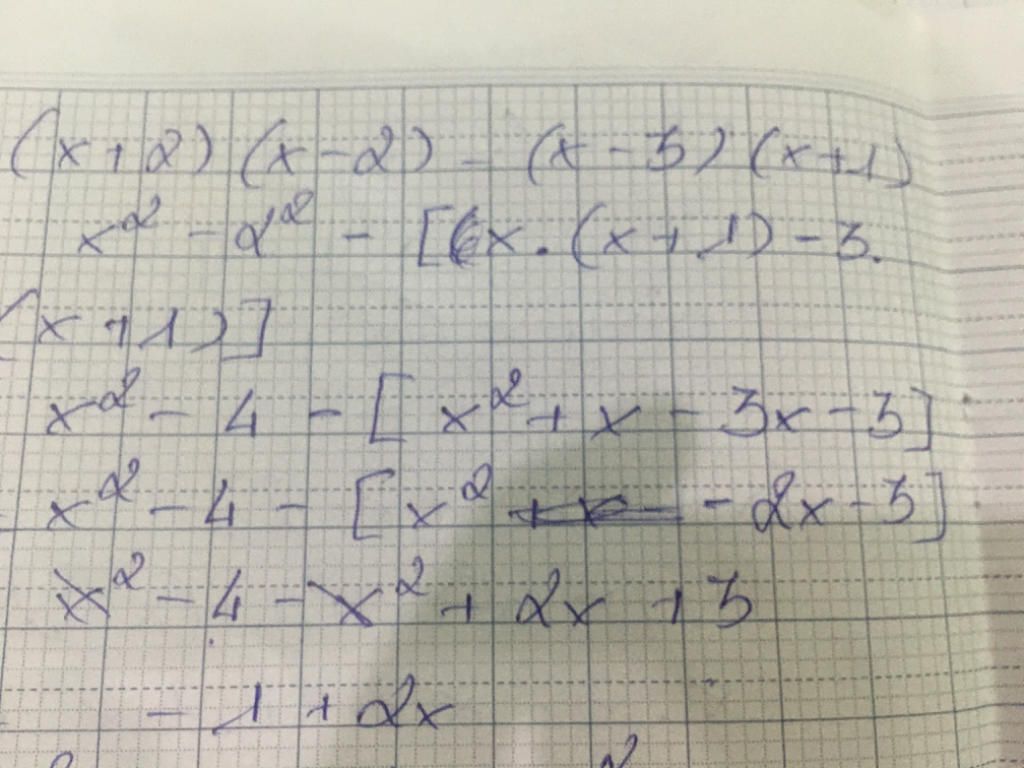 (x+2)(x-2) - (x-3)(x+1)
x² - 2² - [x.(x+1) - 3.
(x+1)]
x² - 4 - [x² + x - 3x - 3]
x² - 4 - [x² - 2x - 3]
x² - 4 - x² + 2x + 3
- 1 + 2x